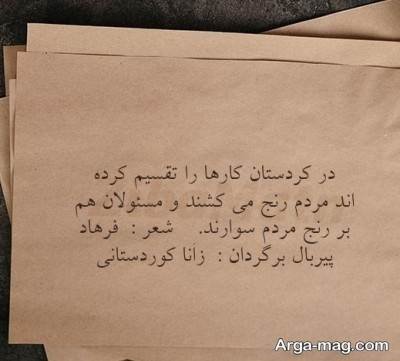 در کردستان کارها را تقسیم کرده
اند مردم رنج می کشند و مسئولان هم
بر رنج مردم سوارند. شعر : فرهاد
پیربال برگردان : زانا کوردستانی
Arga-mag.com